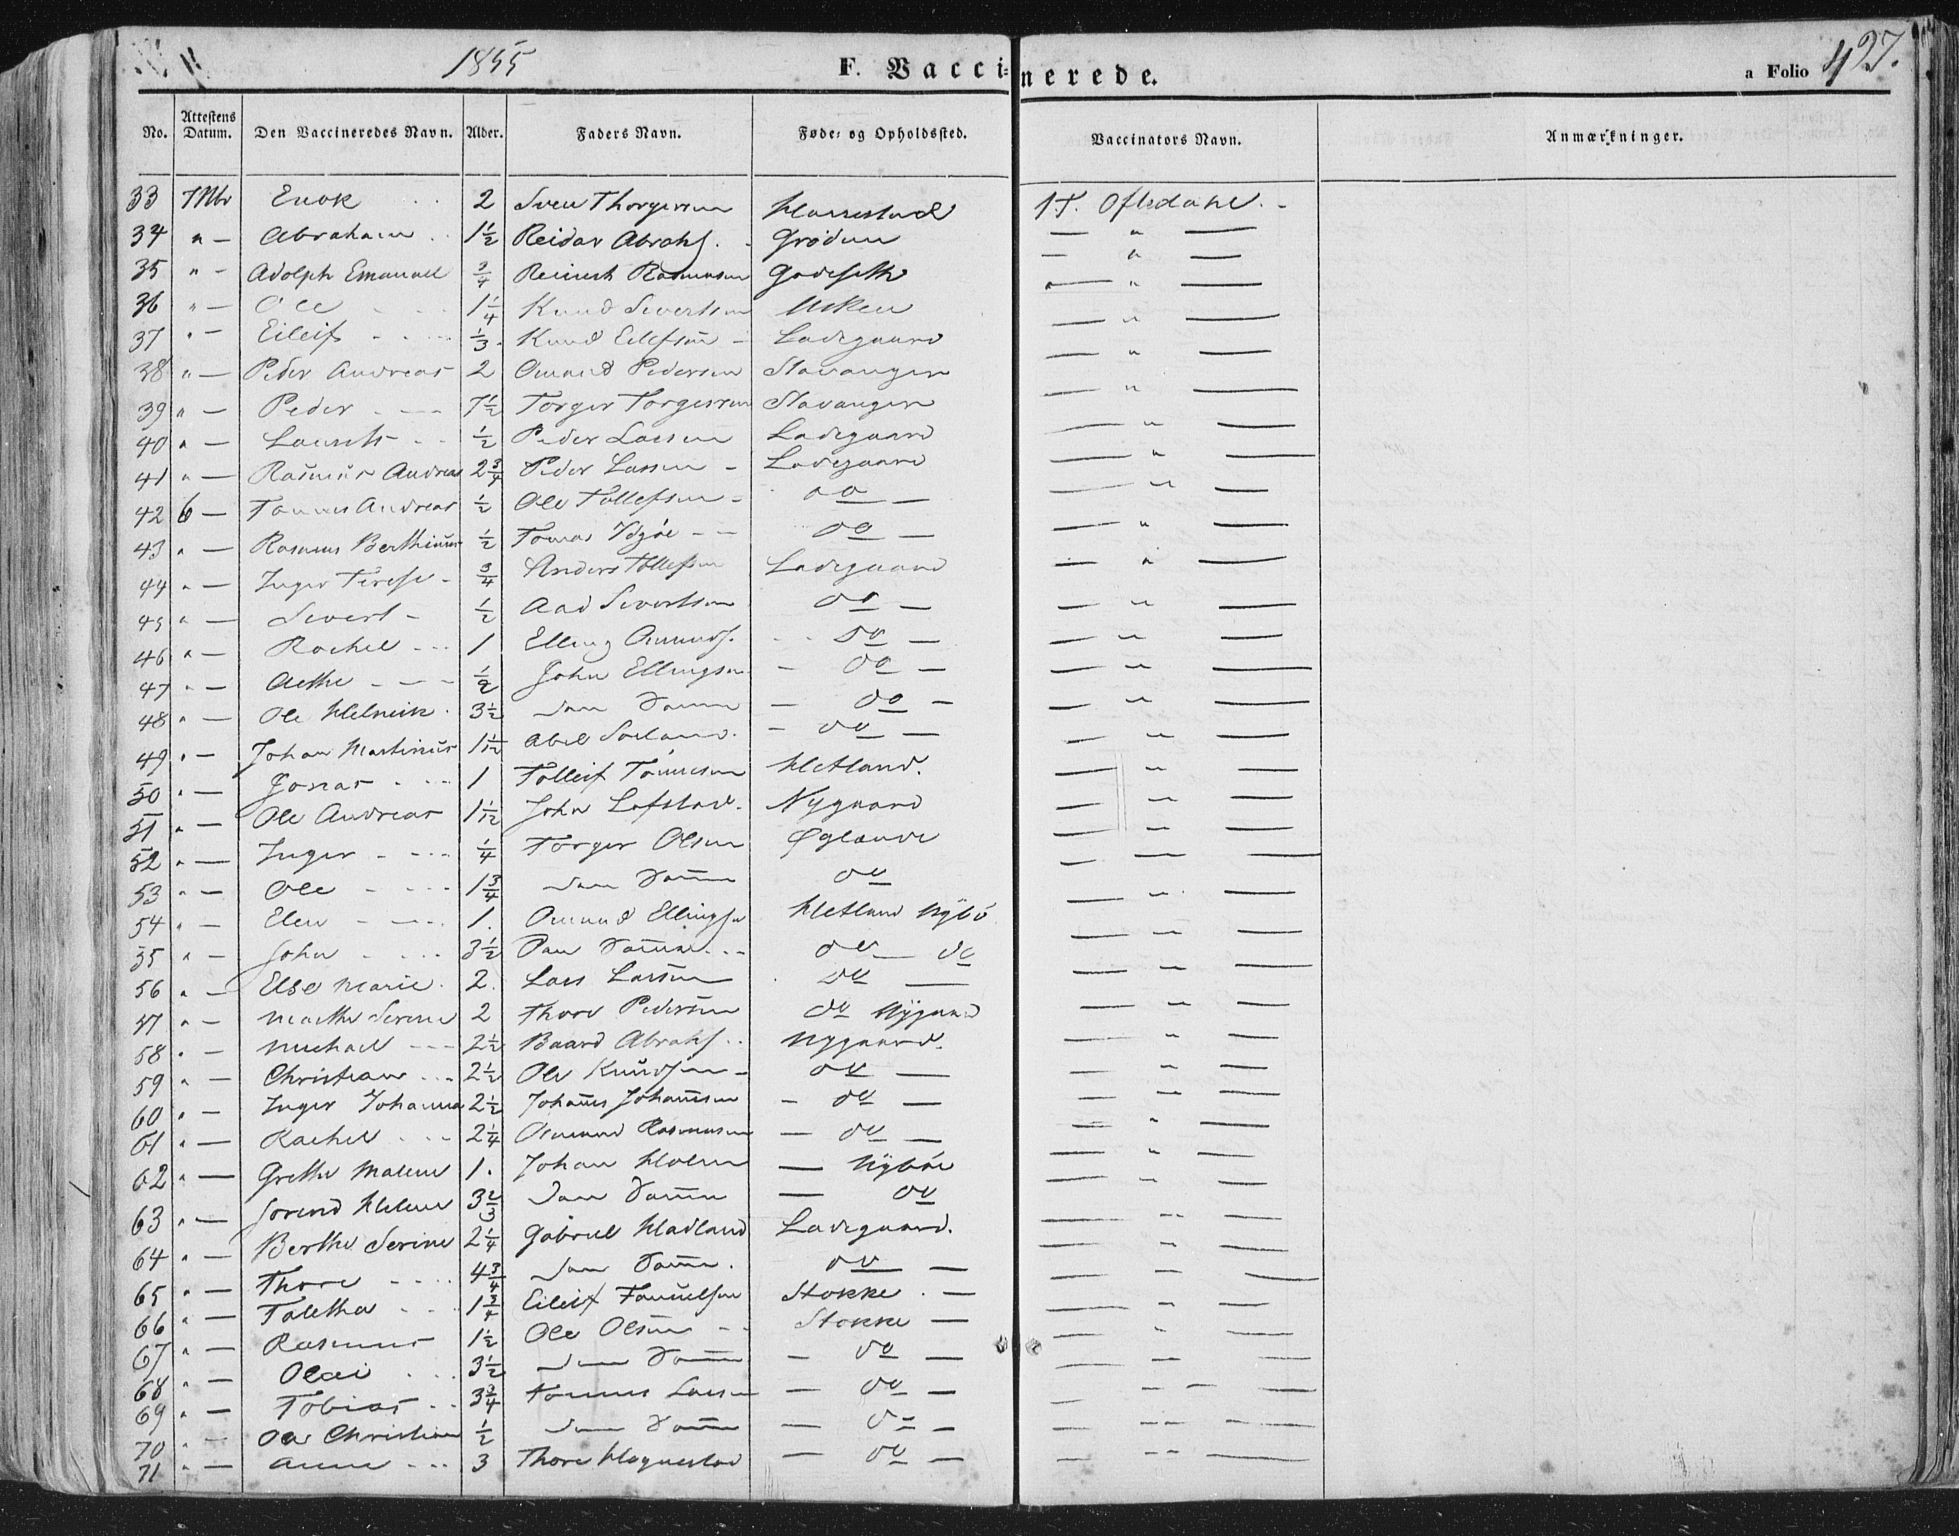 1855 F. Vaccinerede. a Folio 427.
No. Attestens Datum. Den Vaccineredes Navn. Alder. Faders Navn. Føde- og Opholdssted. Vaccinators Navn. Anmærkninger.
33 Enok 2 Sven Thorgersen Oftedahl.
34 " — Abraham 1½ Reidar Abrahs. Grødem — " —
35 " — Adolph Emanuel ¾ Reinert Rasmussen Godeseth — " —
36 " — Ole 1¼ Knud Sivertsen Usken — " —
37 " — Eileif ⅓ Knud Eilefsen — Ladegaard — " —
38 " — Peder Andreas 2 Omund Pedersen Stavanger — " —
39 " — Peder 7½ Torger Torgersen Stavanger — " —
40 " — Laurits ½ Peder Larsen Ladegaard — " —
41 " — Rasmus Andreas 2¾ Peder Larsen — Ladegaard — " —
42 6 — Tønnes Andreas ½ Ole Tollefsen — do — — " —
43 " — Rasmus Berthinius ½ Tomas Idsøe — — do — — " —
44 " — Inger Terese — ¾ Anders Tollefsen Ladegaard — " —
45 " — Sivert — ½ Aad Sivertsen do — — " —
46 " — Rachel 1 Elling Omunds. do — — " —
47 " — Aethe ½ John Ellingsen — do — — " —
48 " — Ole Helmik 3½ Sam Samm — do — — " —
49 " — Johan Martinius 1 1/12 Abel Soeland. — do — — " —
50 " — Jonas 1 Tolleif Tønnesen Hetland. — " —
51 " — Ole Andreas 1 1/12 John Lofstad. Nygaard — " —
52 " — Inger ¼ Torger Olsen Øglænde — " —
53 " — Ole 1¾ Sam Samm do — " —
54 " — Elen 1. Omund Ellingsen Hetland Nybø — " —
55 " — John 3½ Sam Samm do — do — " —
56 " — Else Marie 2. Lars Larsen do — — " —
57 " — Marthe Serine 2 Thore Pedersen do Nygaard — " —
58 " — Michael 2½ Baard Abrahs. Nygaard. — " —
59 " — Christian 2½ Ole Knudsen — do — — " —
60 " — Inger Johanna 2½ Johannes Johannesen — do — — " —
61 " — Rachel 2¼ Osmund Rasmussen — do — — " —
62 " — Grethe Malene 1. Johan Holm — Nybøe — " —
63 " — Helene 3⅔ Sam Samm — do — " —
64 " — Berthe Serine 2¼ Gabriel Hadland Ladegaard. — " —
65 " — Thore 4¾ Sam Samm. do — — " —
66 " — Taletha 1¾ Eileif Stokke — — " —
67 " — Rasmus 1½ Ole Olsen Stokke — — " —
68 " — Olai 3½ Sam Samm — do — — " —
69 " — Tobias 3¾ Tønnes Larsen — do — — " —
70 " — Ole Christian ½ Sam Samm — do — — " —
71 " — Anne 3 Thore Hognestad — do — — " —